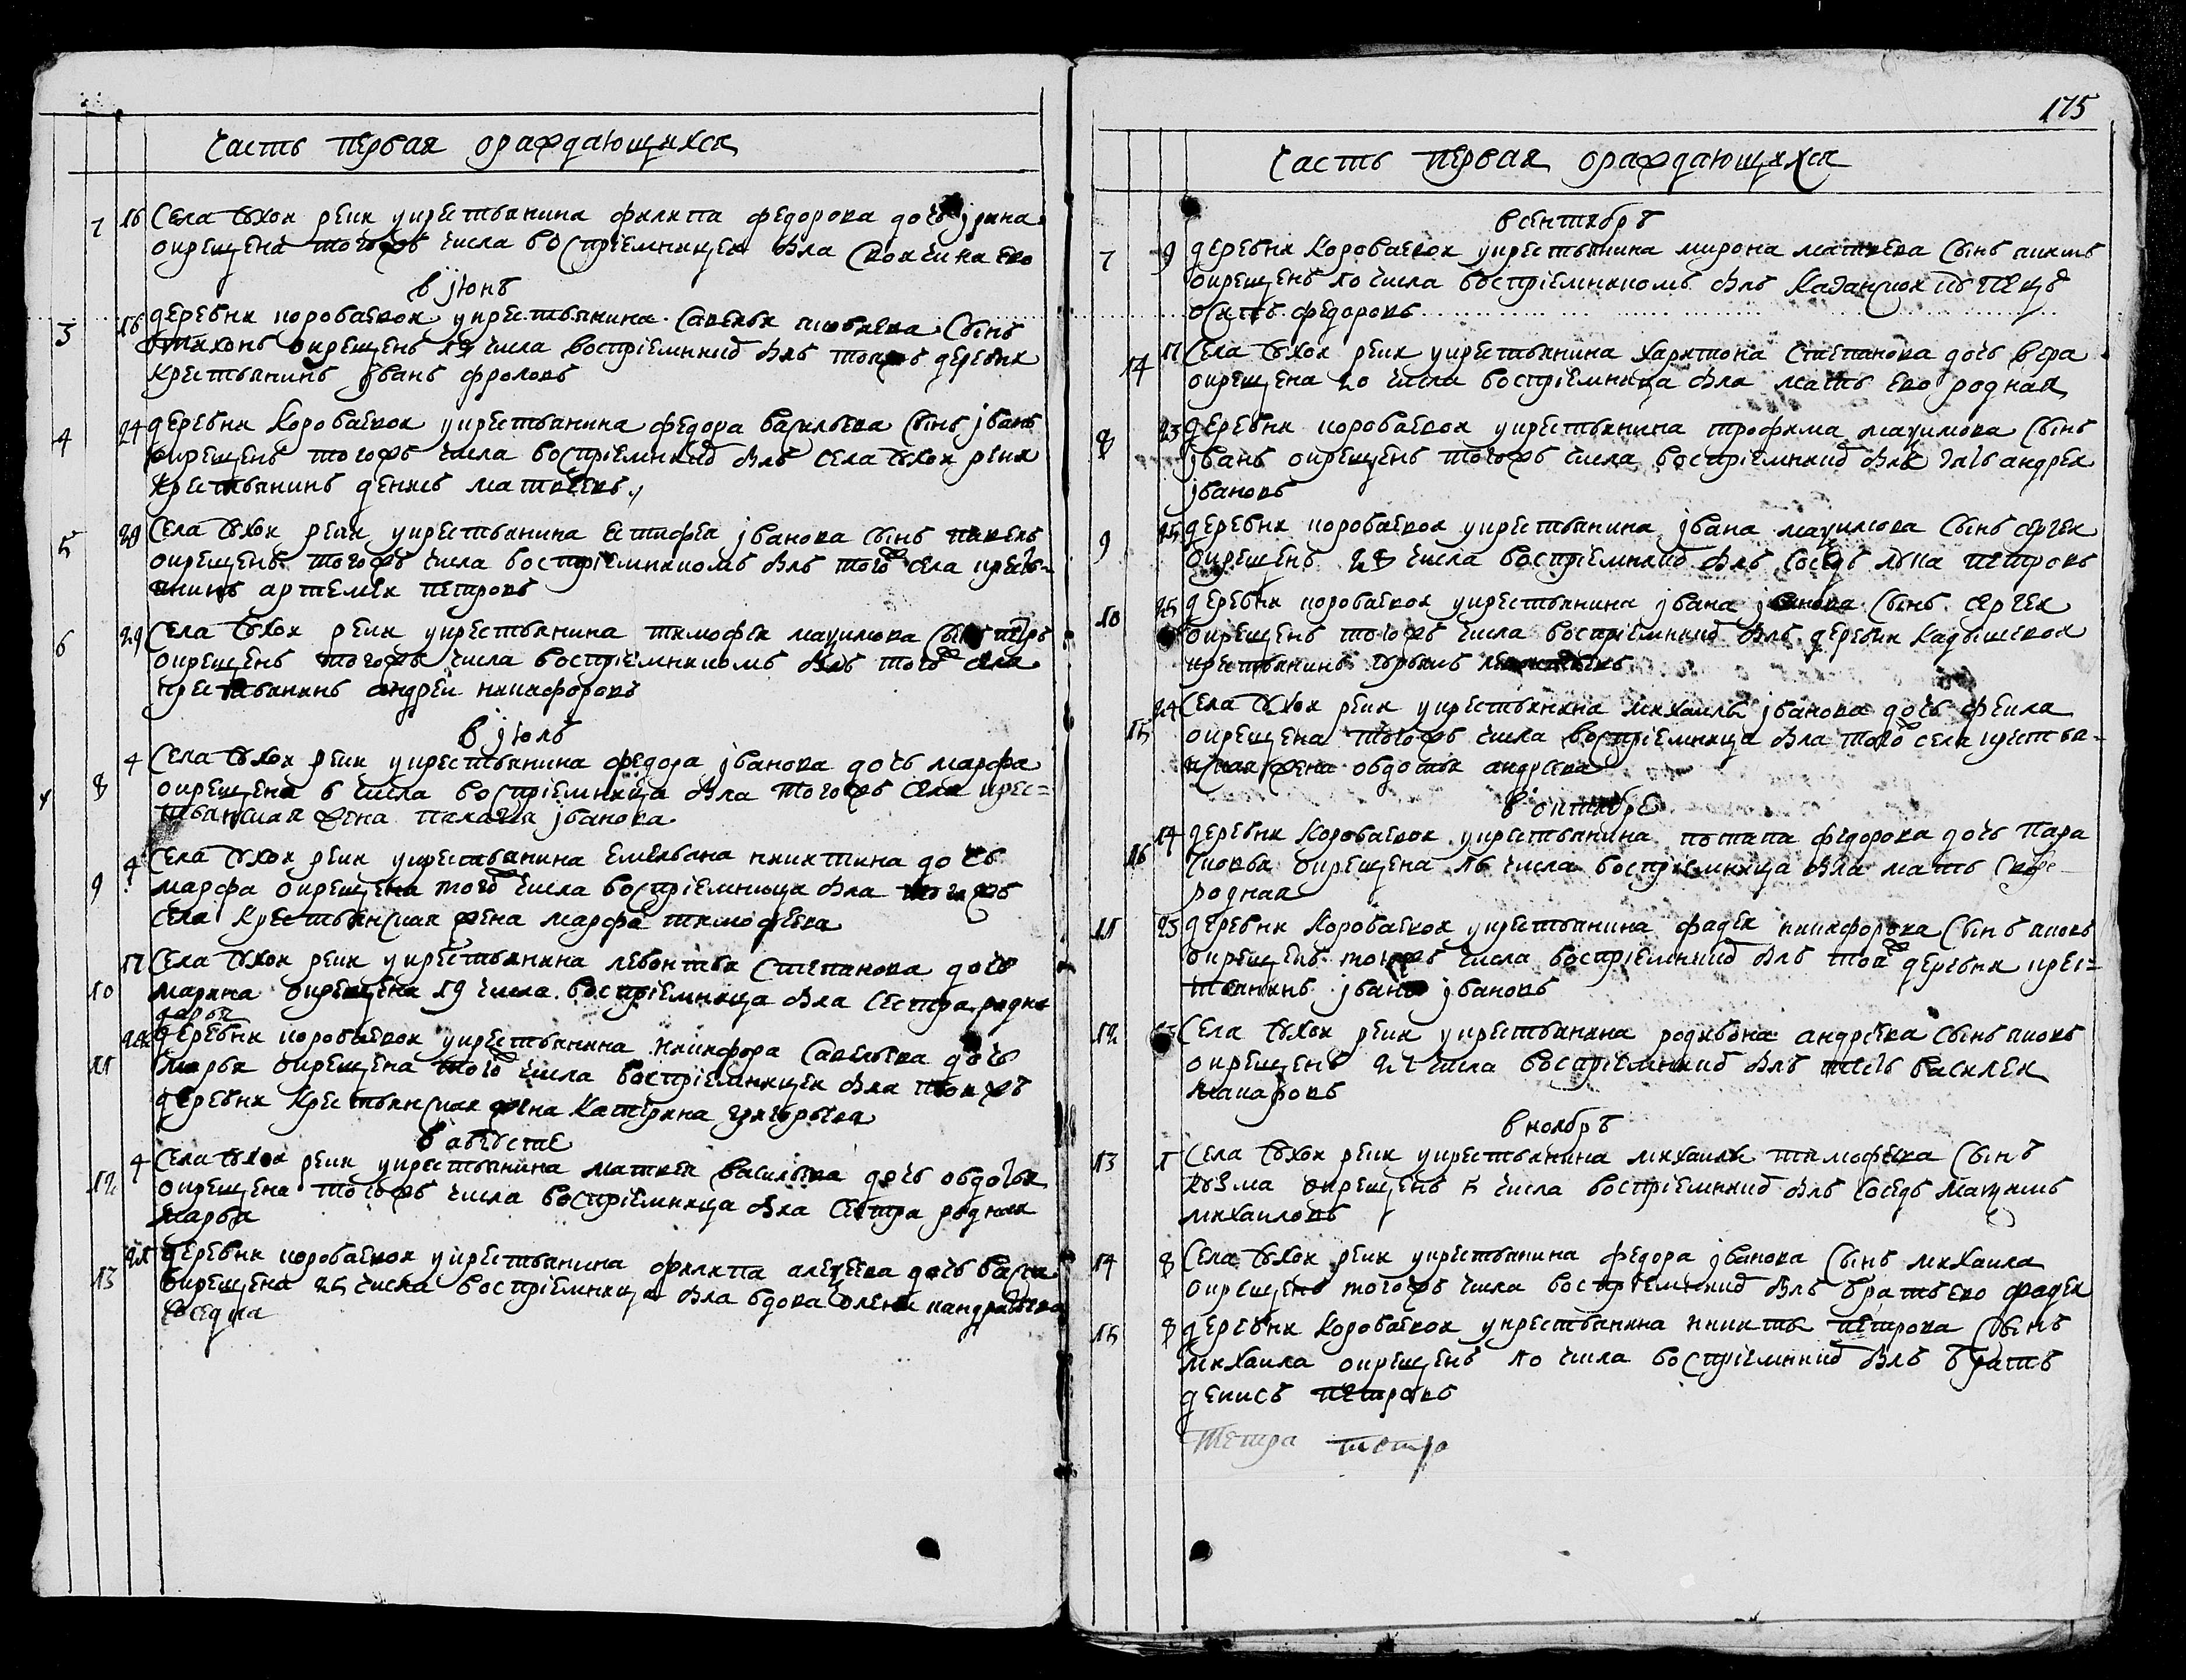 Часть первая ораждающихся
7 16 Села Сухои реки у крестьянина филипа федорова дочь јрина
окрещена тогожъ числа восприемницеи была своячина ево
в јюнѣ
3 16 деревни коробаевои у крестьянина савелья яковлева сынъ
тихонъ окрещенъ 19 числа восприемникъ былъ тоижъ деревни
крестьянинъ јванъ фроловъ
4 24 деревни коробаевои у крестьянина федора васильева сынъ јванъ
окрещенъ тогожъ числа восприемникъ былъ села сухои реки
крестьянинъ денисъ матвеевъ
5 28 Села Сухои реки у крестьянина естифея јванова сынъ павелъ
окрещенъ тогожъ числа восприемникомъ былъ того села кресть-
янинъ артемеи петровъ
6 29 Села Сухои реки у крестьянина тимофея макимова сынъ петръ
окрещенъ тогожъ числа восприемникомъ былъ того села
крестьянинъ андреи никифоровъ
в јюлѣ
8 4 Села Сухои реки у крестьянина федора јванова дочь марфа
окрещена 6 числа восприемница была тогожъ села крес-
тьянская жена палагея јванова
9 4 Села Сухои реки у крестьянина емельяна никитина дочь
марфа окрещена того числа восприемница была тогожъ
села крестьянская жена марфа тимофеева
10 17 Села Сухои реки у крестьянина левонтья степанова дочь
марина окрещена 19 числа восприемница была сестра родна
дарья
11 22 деревни коробаевои у крестьянина никифора савельева дочь
марья окрещена того числа восприемницеи была тоижъ
деревни крестьянская жена катерина григорьева
в августе
12 4 Села Сухои реки у крестьянина матвея васильева дочь овдотья
окрещена тогожъ числа восприемница была сестра родная
марья
13 21 деревни коробаевои у крестьянина филипа алексеева дочь васса
окрещена 25 числа восприемница была вдова олена кандратьева
соседка
175
Часть первая ораждающихся
в сентябрѣ
7 9 деревни коробаевои у крестьянина мирона матвеева сынъ
окрещенъ 10 числа восприемникомъ былъ
осипъ федоровъ
14 17 Села Сухои реки у крестьянина харитона степанова дочь вера
окрещена 20 числа восприемница была мать ево родная
8 23 деревни коробаевои у крестьянина трофима макимова сынъ
јванъ окрещенъ тогожъ числа восприемникъ былъ зять андреи
јвановъ
9 25 деревни коробаевои у крестьянина јвана макимова сынъ сергеи
окрещенъ 28 числа восприемникъ былъ соседъ лука петровъ
10 25 деревни коробаевои у крестьянина јвана јванова сынъ сергеи
окрещенъ тогожъ числа восприемникъ былъ деревни кадышевои
крестьянинъ
15 24 Села Сухои реки у крестьянина михаилы јванова дочь фекла
окрещена тогожъ числа восприемница была того села крестья-
нская жена овдотья андреева
в октябре
16 14 деревни коробаевои у крестьянина потапа федорова дочь пара
сковья окрещена 16 числа восприемница была мать
родная
11 23 деревни коробаевои у крестьянина фадея никифорова сынъ яковъ
окрещенъ тогожъ числа восприемникъ былъ тои деревни крес-
тьянинъ јванъ јвановъ
12 Села Сухои реки у крестьянина родивона андреева сынъ яковъ
окрещенъ 27 числа восприемникъ былъ тесть василеи
макаровъ
в ноябрѣ
13 1 Села Сухои реки у крестьянина михаилы тимофеева сынъ
козма окрещенъ 5 числа восприемникъ былъ соседъ макимъ
михаиловъ
14 8 Села Сухои реки у крестьянина федора јванова сынъ михаила
окрещенъ тогожъ числа восприемникъ былъ братъ ево фадеи
15 8 деревни коробаевои у крестьянина никиты петрова сынъ
михаила окрещенъ 10 числа восприемникъ былъ братъ
денисъ петровъ